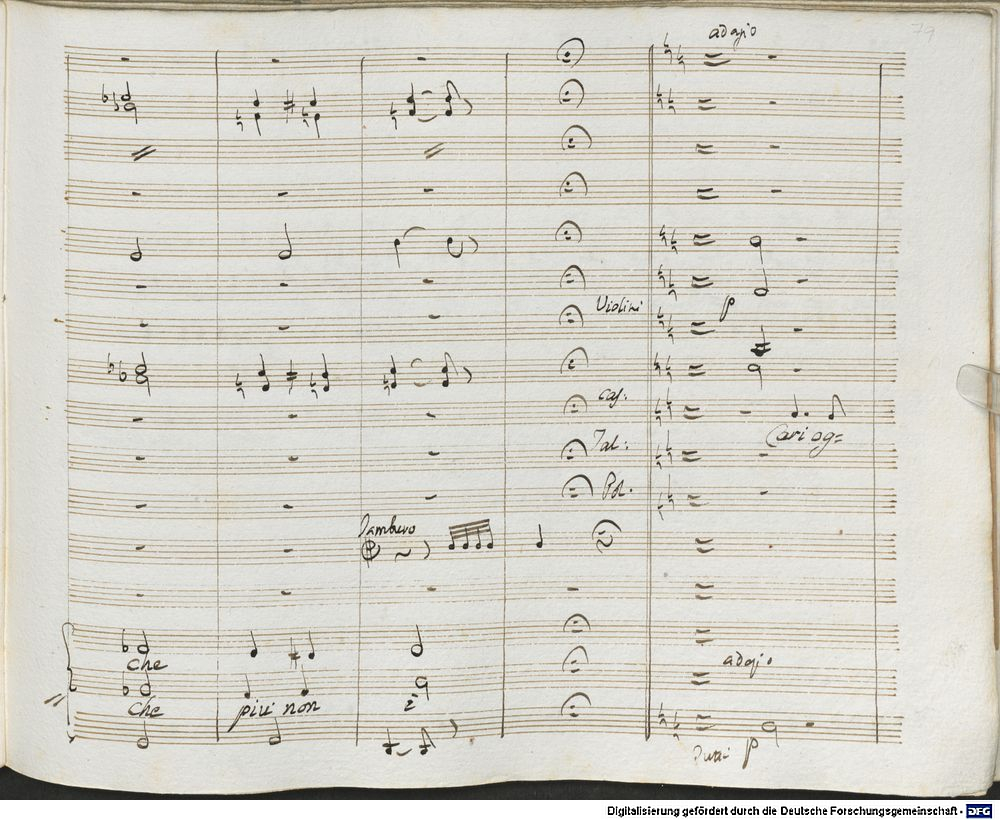 79
adagio
Violini
p
cas.
Cari og=
Tal:
Pol.
Tamburo
che
adagio
che più non è
Tutti p
Digitalisierung gefördert durch die Deutsche Forschungsgemeinschaft - DFG